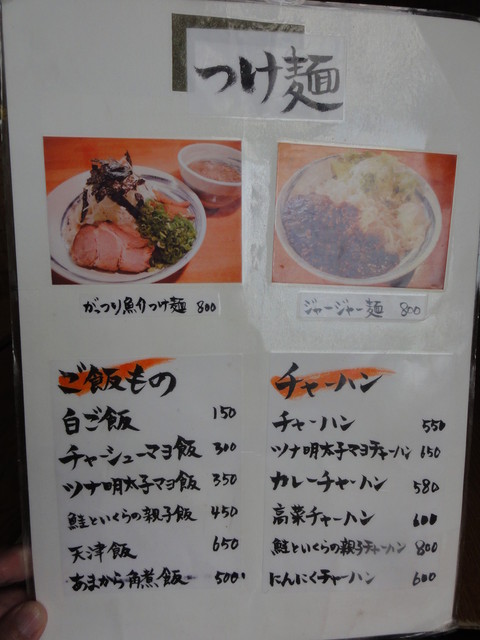 つけ麺
がっつり魚介つけ麺 800
ジャージャー麺 800
ご飯もの
白ご飯 150
チャーシューマヨ飯 300
ツナ明太子マヨ飯 350
鮭といくらの親子飯 450
天津飯 650
あまから角煮飯 500
チャーハン
チャーハン 550
ツナ明太子マヨチャーハン 650
カレーチャーハン 580
高菜チャーハン 600
鮭といくらの親子チャーハン 800
にんにくチャーハン 600